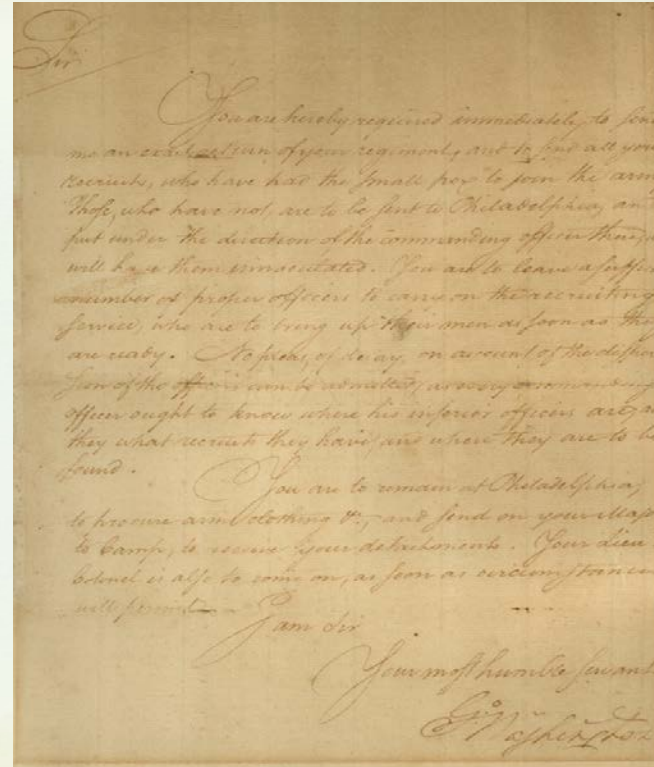 Sir
You are hereby required immediately, to send
me an exact return of your regiment, and to send all your
recruits, who have had the small pox to join the army
Those, who have not, are to be sent to Philadelphia, and
put under the direction of the commanding officer there,
will have them innoculated. You are to leave a suffic
number of proper officers to carry on the recruiting
service, who are to bring up their men as soon as they
are ready. No pleas, of delay, on account of the disper
sion of the officers can be admitted, as every commanding
officer ought to know where his inferior officers are, a
they what recruits they have, and where they are to be
found.
You are to remain at Philadelphia,
to procure arms, clothing &c, and send on your Major
to Camp, to receive your detachments. Your Lieu
Colonel is also to come on, as soon as circumstances
will permit
I am Sir
Your most humble servant
Go Washington